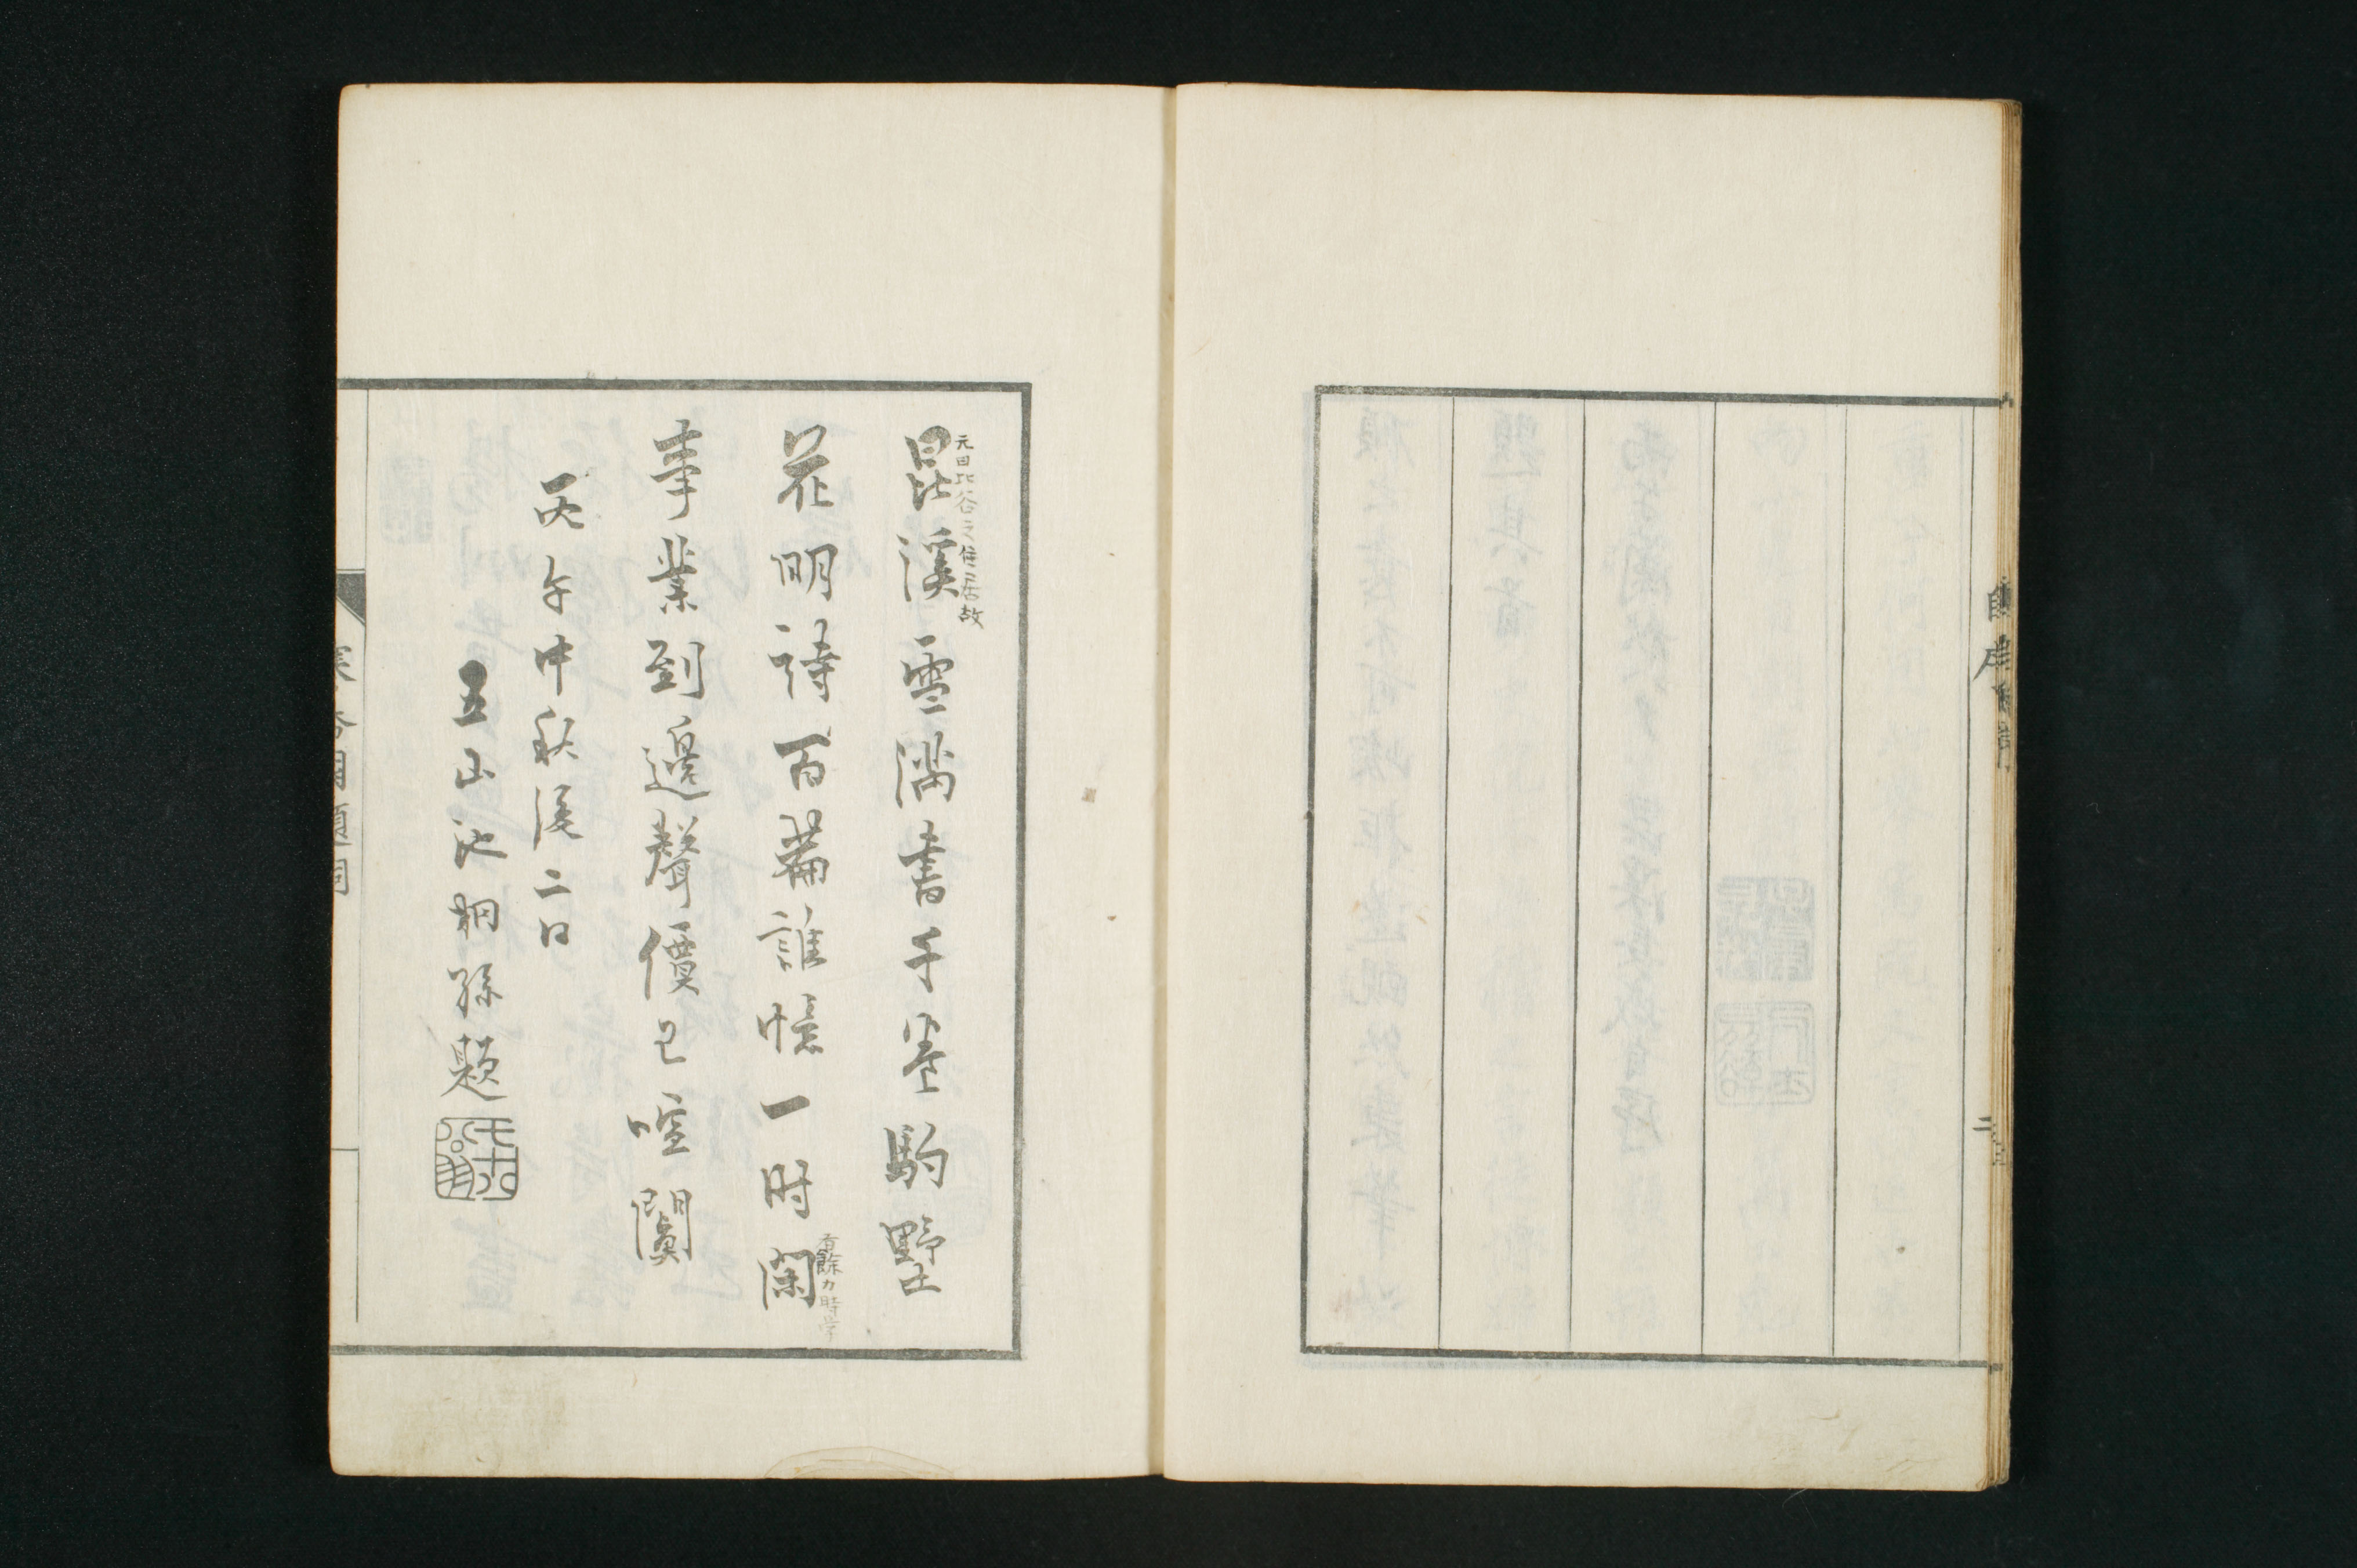 昆溪雪滿書千卷駒野
元日比谷之住居故
花明詩百篇誰憶一時閑
有餘力時学
事業到邊聲價已喧闐
丙午中秋後二日
五山池桐孫題